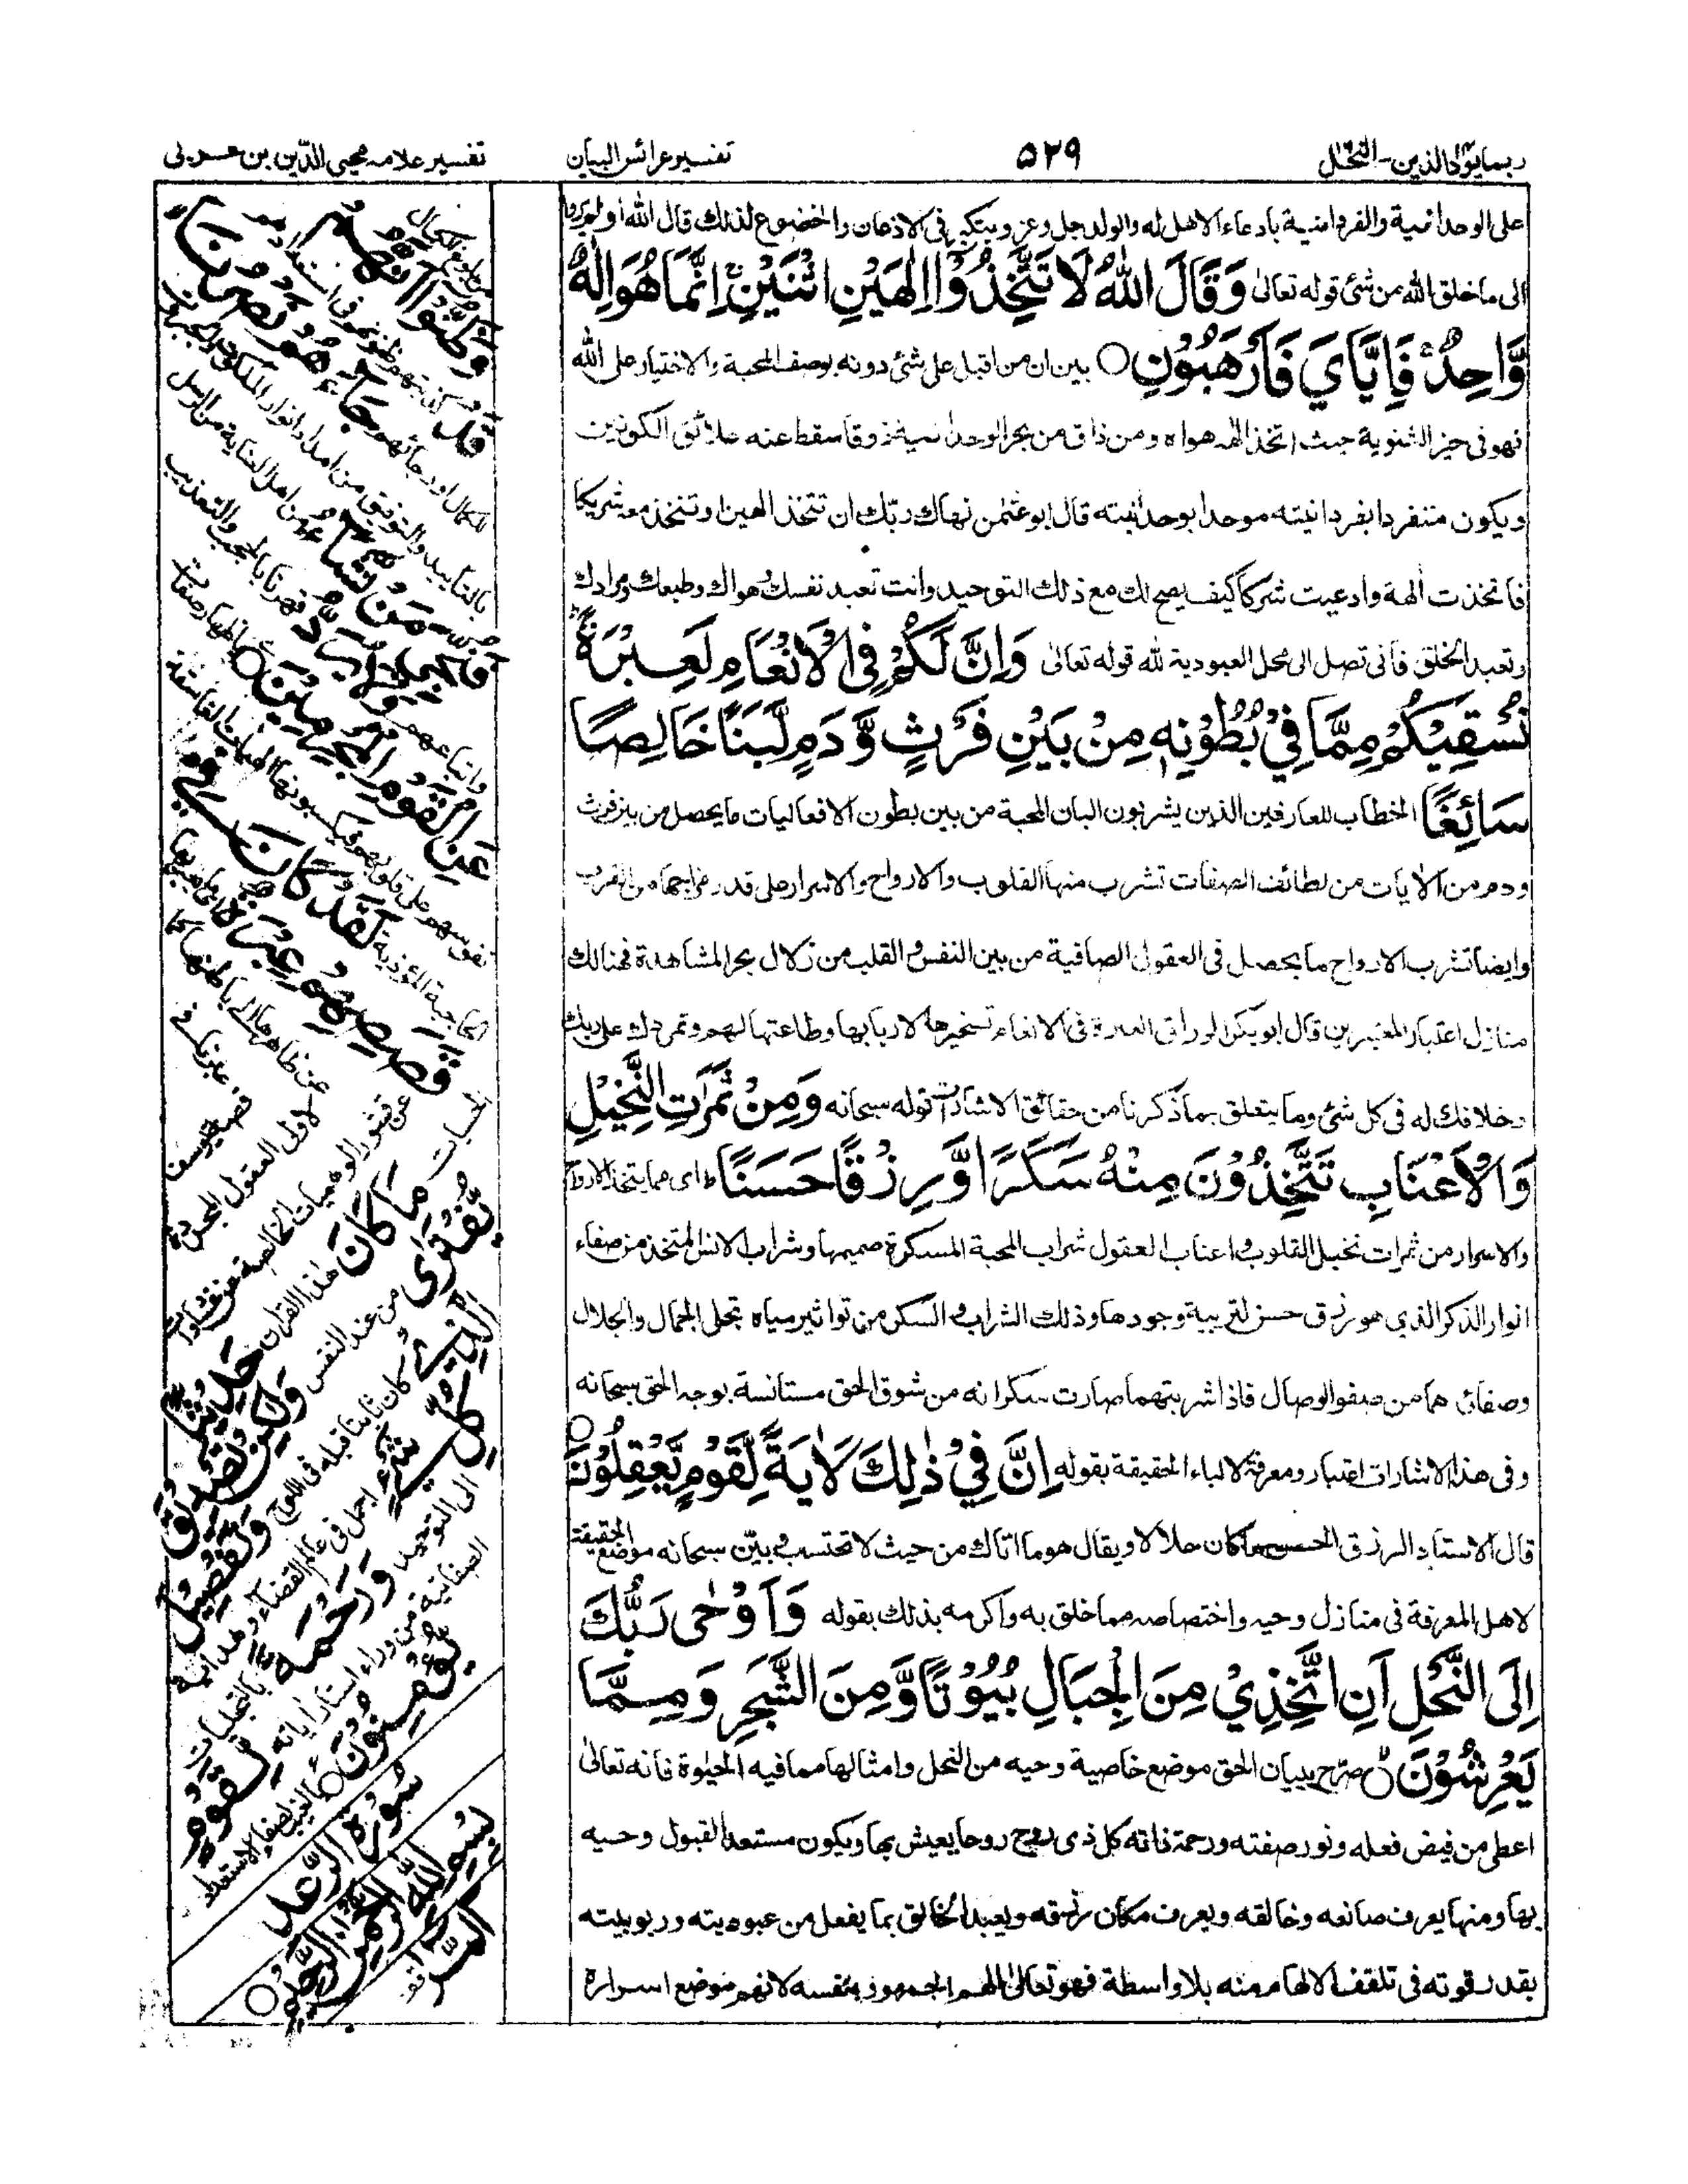 ربما يود الذين - النحل
٥٢٩
تفسير عرائس البيان
تفسير علامه محيي الدين بن عربي
على الوحدانية والفردانية بادعاء الاهل له والولد جل وعز ويتكبر في الاذعان والخضوع لذلك قال الله اولم يروا
الى ما خلق الله من شئ قوله تعالى وَقَالَ اللهُ لَا تَتَّخِذُوْا اِلٰهَيْنِ اثْنَيْنِ اِنَّمَا هُوَ اِلٰهٌ
وَّاحِدٌ فَاِيَّايَ فَارْهَبُوْنِ ○ بين ان من اقبل على شئ دونه بوصف المحبة والاختيار على الله
فهو في حيز الثنوية حيث اتخذ الهه هواه ومن ذاق من بحر الوحدانية ذوقا سقط عنه علائق الكونين
ويكون منفردا بفردانيته موحدا بوحدانيته قال ابو عثمن نهاك ربك ان تتخذ الهين وتتخذ معه شريكا
فاتخذت الهة وادعيت شركا كيف يصح لك مع ذلك التوحيد وانت تعبد نفسك وهواك وطبعك ومرادك
وتعبد الخلق فانى تصل الى محل العبودية لله قوله تعالى وَاِنَّ لَكُمْ فِى الْاَنْعَامِ لَعِبْرَةً
نُسْقِيْكُمْ مِمَّا فِيْ بُطُوْنِهٖ مِنْ بَيْنِ فَرْثٍ وَّدَمٍ لَّبَنًا خَالِصًا
سَائِغًا الخطاب للعارفين الذين يشربون البان المحبة من بين بطون الافعاليات ما يحصل من بين فرث
ودم من الايات من لطائف الصفات تشرب منها القلوب والارواح والاسرار على قدر مزاجها من القرب
وايضا تشرب الارواح ما يحصل في العقول الصافية من بين النفس والقلب من زلال بحر المشاهدة فهنالك
منازل اعتبار المعتبرين قال ابو بكر الوراق العبرة في الانعام تسخيرها لاربابها وطاعتها لهم وتمردك على ربك
وخلافك له في كل شئ وما يتعلق بما ذكرنا من حقائق الاشارات قوله سبحانه وَمِنْ ثَمَرٰتِ النَّخِيْلِ
وَالْاَعْنَابِ تَتَّخِذُوْنَ مِنْهُ سَكَرًا وَّرِزْقًا حَسَنًا اى مما يتخذ الارواح
والاسرار من ثمرات نخيل القلوب واعناب العقول شراب المحبة المسكرة صميمها وشراب الانس المتخذ من صفاء
انوار الذكر الذي هو رزق حسن لتربية وجودها وذلك الشراب والسكر من تواثير مياه تجلى الجمال والجلال
وصفائ هما من صفو الوصال فاذا شربتهما صارت سكرانه من شوق الحق مستانسة بوجه الحق سبحانه
وفى هذه الاشارات اعتبار ومعرفة لالباء الحقيقة بقوله اِنَّ فِيْ ذٰلِكَ لَاٰيَةً لِّقَوْمٍ يَّعْقِلُوْنَ ○
قال الاستاد الرزق الحسن ما كان حلالا ويقال هو ما اتاك من حيث لا تحتسب وبيّن سبحانه موضع الحقيقة
لاهل المعرفة في منازل وحيه واختصاصه مما خلق به واكرمه بذلك بقوله وَاَوْحٰى رَبُّكَ
اِلَى النَّحْلِ اَنِ اتَّخِذِيْ مِنَ الْجِبَالِ بُيُوْتًا وَّمِنَ الشَّجَرِ وَمِمَّا
يَعْرِشُوْنَ ○ صرّح ببيان الحق موضع خاصية وحيه من النحل وامثالها مما فيه الحيٰوة فانه تعالى
اعطى من فيض فعله ونور صفته ورحمة ذاته كل ذى روح روحا يعيش بها ويكون مستعدا لقبول وحيه
بها ومنها يعرف صانعه وخالقه ويعرف مكان رزقه ويعبد الخالق بما يفعل من عبوديته وربوبيته
بقدر قوته فى تلقف الالهام منه بلا واسطة فهو تعالى الهم الجمهور بنفسه لانهم موضع اسراره
وَظَنُّوْا اَنَّهُمْ
قَدْ كُذِبُوْا
جَاءَهُمْ نَصْرُنَا
بالتأييد والتوفيق من امداد انوار الملكوت والجبروت
فَنُجِّيَ مَنْ نَّشَاءُ
وَلَا يُرَدُّ
عَنِ الْقَوْمِ الْمُجْرِمِيْنَ ○
لَقَدْ كَانَ فِيْ
قَصَصِهِمْ عِبْرَةٌ
عن ظاهرها الى باطنها كما
عبرنا فى
قصة يوسف
لاولى العقول المجردة
عن قشور الوهميات الخالصة عن غشاوات
الحسيات
مَا كَانَ هذا القرآن حَدِيْثًا
يُفْتَرٰى من عند النفس وَلٰكِنْ تَصْدِيْقَ
الَّذِيْ كان ثابتا قبله فى اللوح وَتَفْصِيْلَ
كُلِّ شَيْءٍ اجمل فى عالم القضاء وهداية
الى التوحيد وَرَحْمَةً بالتجليات
الصفاتية من وراء استار اياته لِقَوْمٍ
يُّؤْمِنُوْنَ ○ بالغيب لصفاء الاستعداد
سُوْرَةُ الرَّعْدِ
بِسْمِ اللهِ الرَّحْمٰنِ الرَّحِيْمِ ○
الٓمّٓرٰ